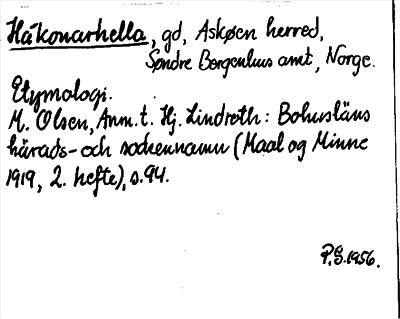 Håkonarhella, gd, Askøen herred,
Søndre Bergenhus amt, Norge.
Etymologi.
M. Olsen, Anm. t. Hj. Lindroth: Bohusläns
härads- och sockennamn (Maal og Minne
1919, 2. hefte), s. 94.
P.G. 1956.